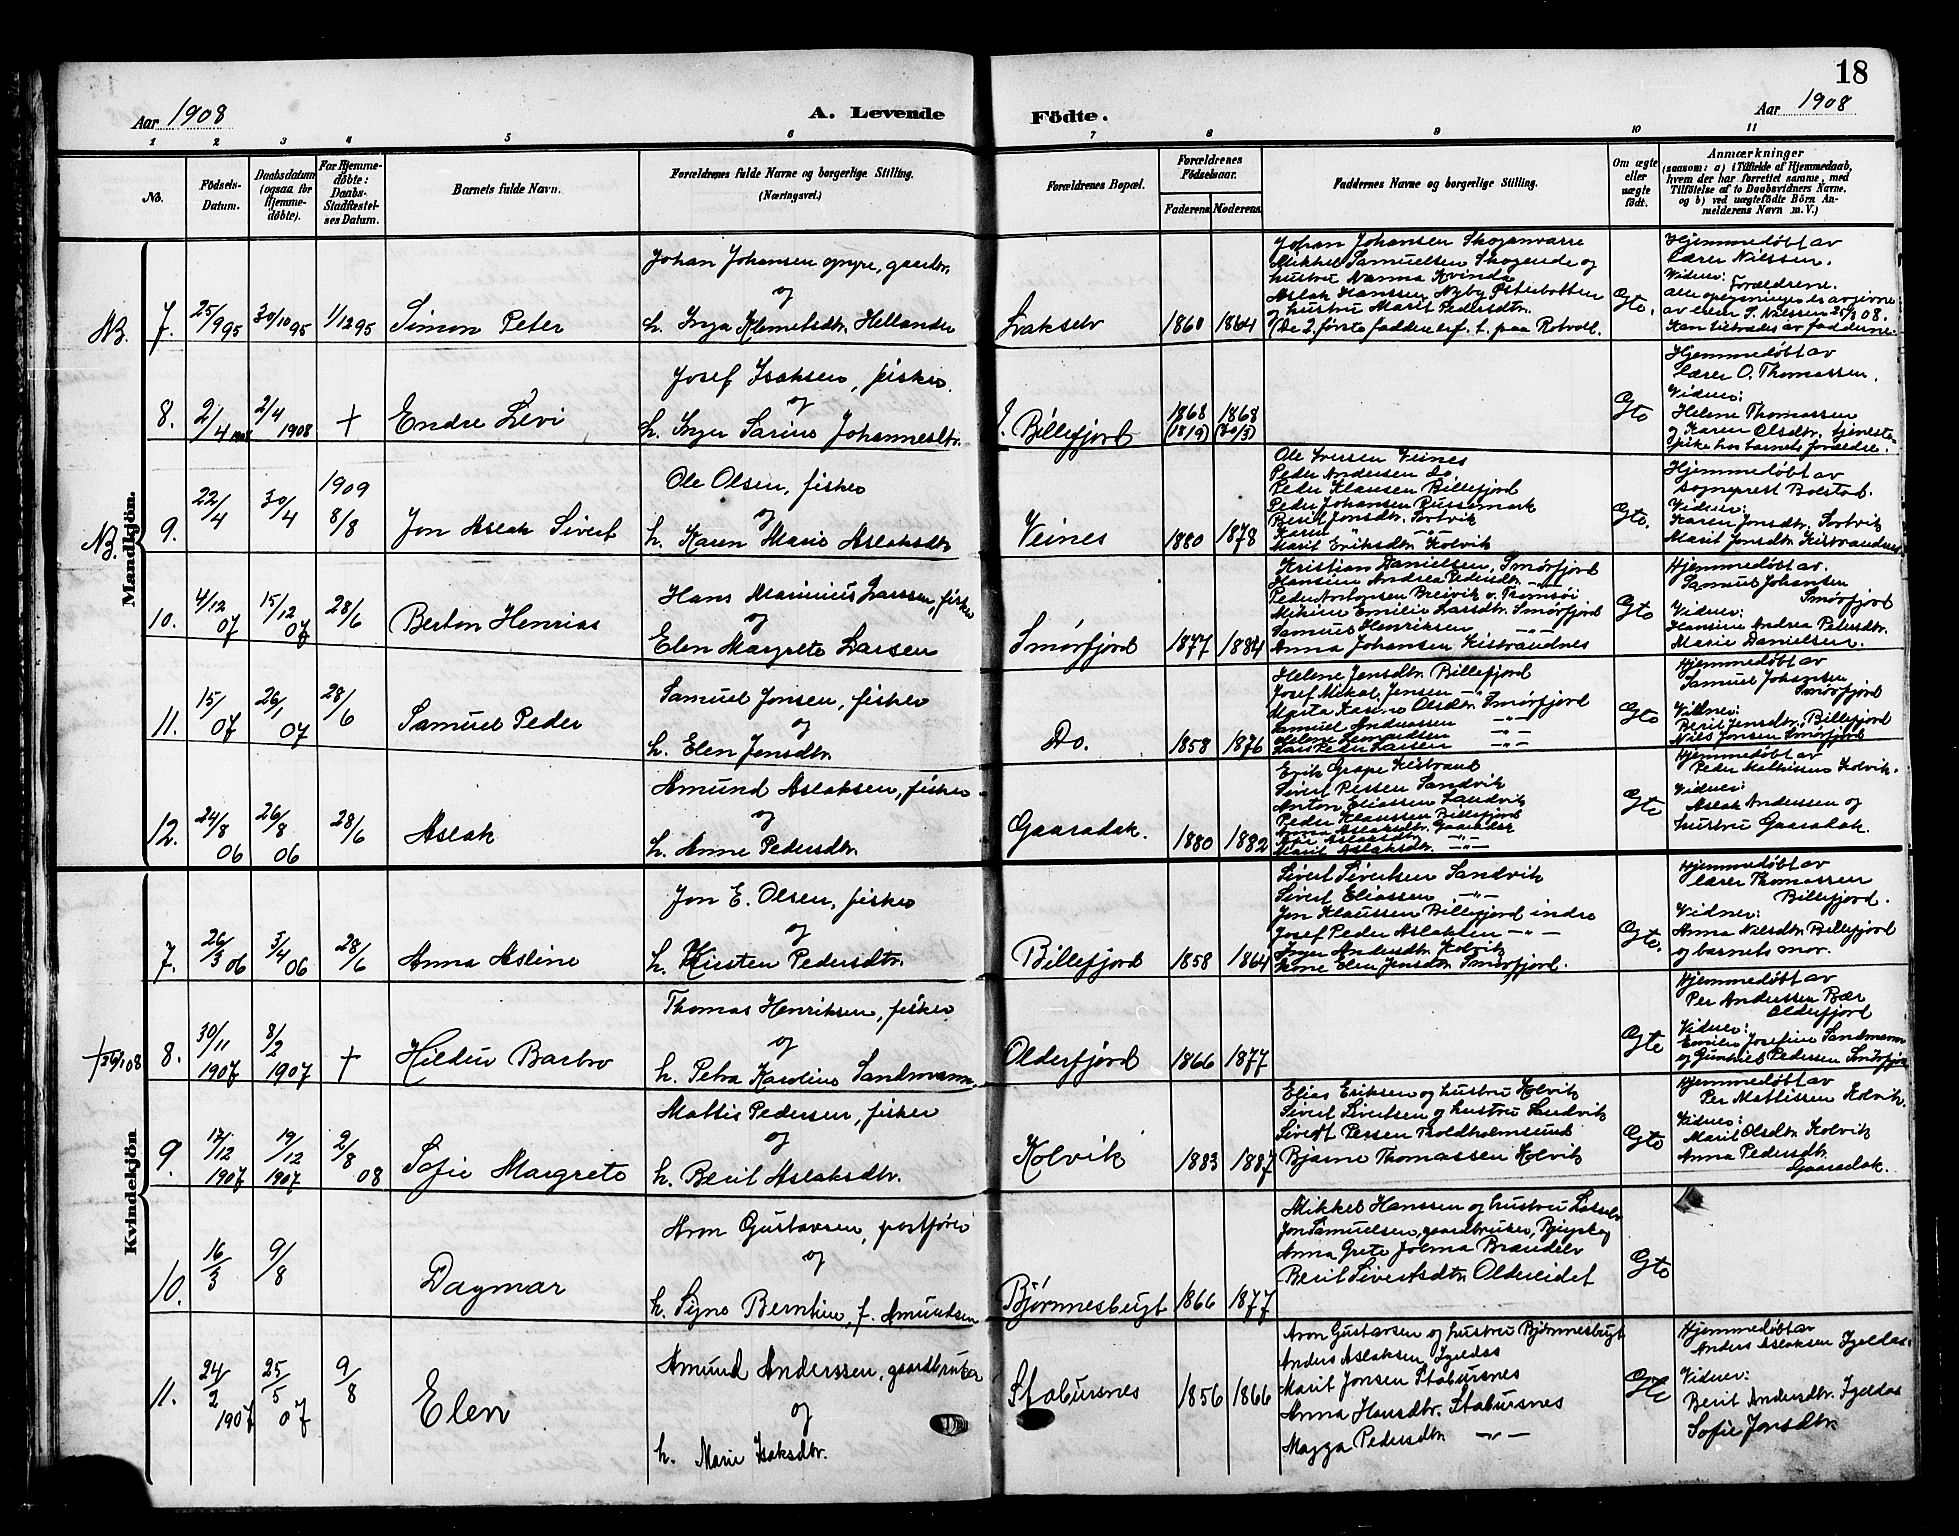 18
Aar 1908
A. Levende
Födte.
Aar 1908
1 2 3 4 5 6 7 8 9 10 11
No.
Födsels-
Datum.
Daabsdatum
(ogsaa for
Hjemme-
døbte).
For Hjemme-
døbte:
Daabs-
Stadfæstel-
ses Datum.
Barnets fulde Navn.
Forældrenes fulde Navne og borgerlige Stilling.
(Næringsvei.)
Forældrenes Bopæl.
Forældrenes
Födselsaar.
Faderens
Moderens
Faddernes Navne og borgerlige Stilling.
Om ægte
eller
uægte
født.
Anmærkninger
(saasom: a) i Tilfælde af Hjemmedaab,
hvem der har forrettet samme, med
Tilföielse af to Daabsvidners Navne,
og b) ved uægtefödte Börn An-
melderens Navn m. V.)
Mandkjön.
NB. 7. 25/9 95 30/10 95 1/12 95 Simon Peter
Johan Johansen, gaardbr.
og
h. Inga Klemetsdtr. Hellander
Lakselv 1860 1864
Johan Johansen Skoganvarre
Mikkel Samuelsen Skogende og
hustru Nanna Kvinda
Aslak Hanssen Nyby Østerbotten
og hustru Marit Pedersdtr.
Gte.
Hjemmedøbt av
lærer Nilssen.
Vidner: Forældrene.
8. 2/4 1908 2/4 1908 + Endre Levi
Josef Isaksen, fisker
og
h. Inger Sarine Johannesdtr.
I. Billefjord 1868 (18/9) 1868 (20/3)
Gte
Hjemmedøbt av
lærer O. Thomassen.
Vidner:
Helene Thomassen
og Karen Olsdtr. tjeneste-
pike hos barnets forældre.
NB 9. 22/4 30/4 1909 8/8 Jon Aslak Sivert
Ole Olsen, fisker
og
h. Karen Marie Aslaksdtr
Veines 1880 1878
Ole Iversen Veines
Peder Andersen Do
Peder Klausen Billefjord
Peder Johansen Russemark
Berit Jonsdtr. Sortvik
Karen " "
Marit Eriksdtr. Kolvik
Gte.
Hjemmedøbt av
sogneprest Bolstad.
Vidner:
Karen Jonsdtr. Sortvik
Marit Jonsdtr Kistrandnes
10. 4/12 07 15/12 07 28/6 Berton Henrias
Hans Marinius Larssen, fisker
og
Elen Margrete Larsen
Smørfjord 1877 1884
Kristian Danielsen, Smørfjord
Hansine Andrea Pedersdtr. -"-
Peder Antonsen Breivik v. Tromsö
Mikine Emilie Larsdtr. Smørfjord
Samuel Henriksen -"-
Anna Johansen Kistrandnes
Gte
Hjemmedøbt av.
Samuel Johansen
Smørfjord
Vidner:
Hansine Andrea Pedersdtr.
Marie Danielsen.
11. 15/ 07 26/1 07 28/6 Samuel Peder
Samuel Jonsen, fisker
og
h. Elen Jensdtr.
Do. 1858 1876
Helene Jensdtr. Billefjord
Josef Mikal Jensen -"-
Marta Kasine Olsdtr. Smørfjord
Samuel Andreassen -"-
Lars Peder Larsen -"-
Gte
Hjemmedøbt av
Samuel Johansen
Smørfjord
Vidner:
Berit Jensdtr. Billefjord
Nils Jonsen Smørfjord
12. 24/8 06 26/8 06 28/6 Aslak
Amund Aslaksen, fisker
og
h. Anne Pedersdtr.
Gaaradak. 1880 1882
Erik Grape Kistrand
Sivert Persen Sandvik
Anton Eliassen Sandvik
Peder Klaussen Billefjord
Anna Aslaksdtr. Gaaradak
Marit Aslaksdtr. -"-
Gte
Hjemmedøbt av
Peder Mathisen Kolvik.
Vidner:
Aslak Andersen og
hustru Gaaradak.
Kvindekjön
7. 26/3 06 3/4 06 28/6 Anna Asline
Jon E. Olsen, fisker
og
h. Kirsten Pedersdtr.
Billefjord 1858 1864
Sivert Sivertsen Sandvik
Sivert Eliassen -"-
Jon Klaussen Billefjord indre
Josef Peder Aslaksen -"-
Inger Andersdtr. Kolvik
Kone Elen Jensdtr. Smørfjord.
Gte.
Hjemmedøbt av
lærer Thomassen
Billefjord.
Vidner:
Anna Nilsdtr. Billefjord
og barnets mor.
+ 26/1 08 8. 30/11 1907 8/2 1907 + Hildur Barbro
Thomas Henriksen, fisker
og
h. Petra Karoline Sandmann.
Olderfjord 1866 1877
Gte
Hjemmedøbt av
Per Anderssen Bær
Olderfjord
Vidner:
Emilie Josefine Sandmann
og Gunhild Pedersen Smørfjord
9. 17/12 1907 19/12 1907 2/8 08 Sofie Margrete
Mattis Pedersen, fisker
og
h. Berit Aslaksdtr.
Kolvik 1883 1887
Elias Eriksen og hustru Kolvik
Sivert Sivertsen og hustru Sandvik
Sivert Persen Troldholmsund
Bjarne Thomassen Kolvik
Gte
Hjemmedøbt av
Per Mattissen Kolvik.
Vidner:
Marit Olsdtr. Kolvik
Anna Pedersdtr
Gaaradak.
10. 16/3 9/8 Dagmar
Aron Gustavsen, postfører
og
h. Signe Berntine, f. Amundsen
Bjørnnesbugt 1866 1877
Mikkel Hanssen og hustru Lakselv
Jon Samuelsen, gaardbruker,
Anna Grete Jolma Brandelv
Berit Sivertsdtr. Oldereidet
Gte
11. 24/2 1907 25/5 07 9/8 Elen
Amund Anderssen, gaardbruker
og
h. Marie Isaksdtr.
Stabursnes 1856 1866
Aron Gustavsen og hustru Bjørnnesbugt
Anders Aslaksen Igeldas
Marit Jonsen Stabursnes
Anna Hansdtr. Stabursnes
Magga Pedersdtr -"-
Gte
Hjemmedøbt av
Anders Aslaksen Igeldas.
Vidner:
Berit Andersdtr. Igeldas
Sofie Jonsdtr.